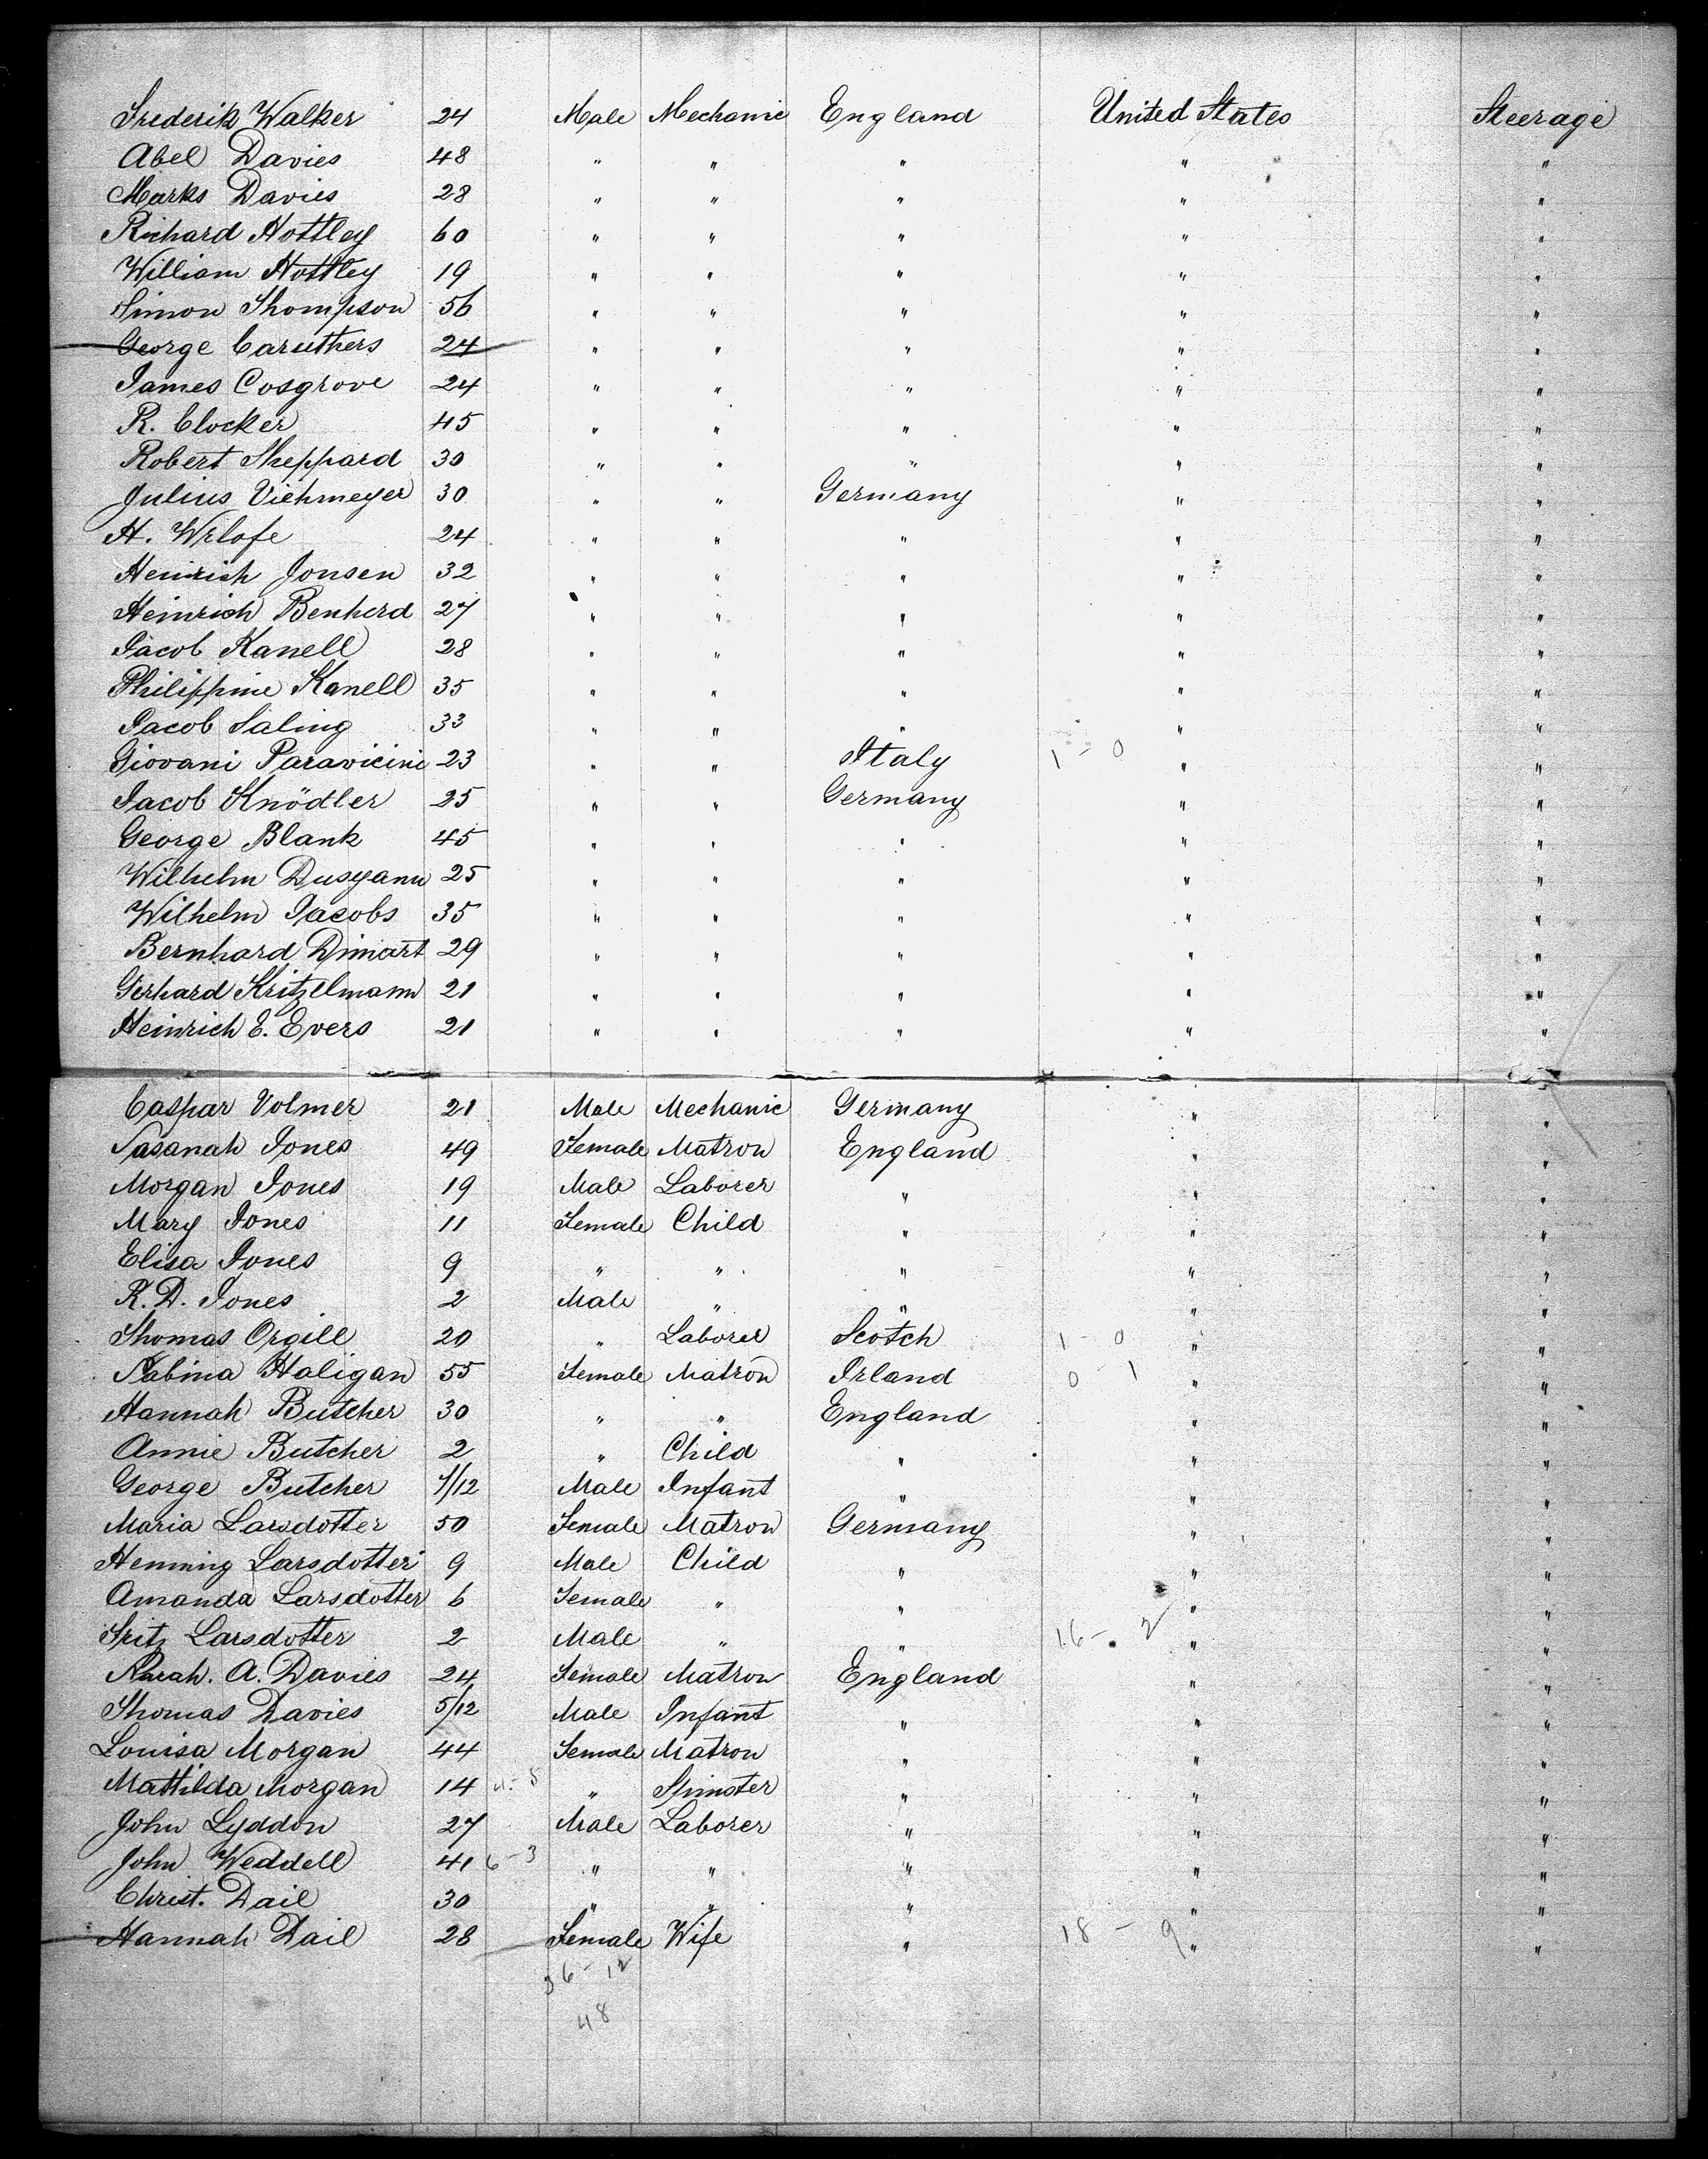 Frederik Walker 24 Male Mechanic England United States Steerage
Abel Davies 48 " " " " "
Marks Davies 28 " " " " "
Richard Hottley 60 " " " " "
William Hottley 19 " " " " "
Simon Thompson 56 " " " " "
George Caruthers 24 " " " " "
James Cosgrove 24 " " " " "
R. Clocker 45 " " " " "
Robert Sheppard 30 " " " " "
Julius Viehmeyer 30 " " Germany " "
H. Wrlofe 24 " " " " "
Heinrich Jonsen 32 " " " " "
Heinrich Benherd 27 " " " " "
Jacob Kanell 28 " " " " "
Philippine Kanell 35 " " " " "
Jacob Saling 33 " " " " "
Giovani Paravicini 23 " " Italy 1 - 0 " "
Jacob Knödler 25 " " Germany " "
George Blank 45 " " " " "
Wilhelm 25 " " " " "
Wilhelm Jacobs 35 " " " " "
Bernhard Dimart 29 " " " " "
Gerhard Kritzelmann 21 " " " " "
Heinrich E. Evers 21 " " " " "
Caspar Volmer 21 Male Mechanic Germany " "
Susanah Jones 49 Female Matron England " "
Morgan Jones 19 Male Laborer " " "
Mary Jones 11 Female Child " " "
Elisa Jones 9 " " " " "
R. D. Jones 2 Male " " " "
Thomas Orgill 20 " Laborer Scotch 1 - 0 " "
Sabina Haligan 55 Female Matron Irland 0 - 1 " "
Hannah Butcher 30 " " England " "
Annie Butcher 2 " Child " " "
George Butcher /12 Male Infant " " "
Maria Larsdotter 50 Female Matron Germany " "
Henning Larsdotter 9 Male Child " " "
Amanda Larsdotter 6 Female " " " "
Fritz Larsdotter 2 Male " " 16 - 2 " "
Sarah. A. Davies 24 Female Matron England " "
Thomas Davies 5/12 Male Infant " " "
Louisa Morgan 44 Female Matron " " "
Mathilda Morgan 14 " Spinster " " "
John Lyddon 27 Male Laborer " " "
John Weddell 41 6 - 3 " " " " "
Christ. Dail 30 " " " " "
Hannah Dail 28 Female Wife " 18 - 9 " "
36 - 12
48